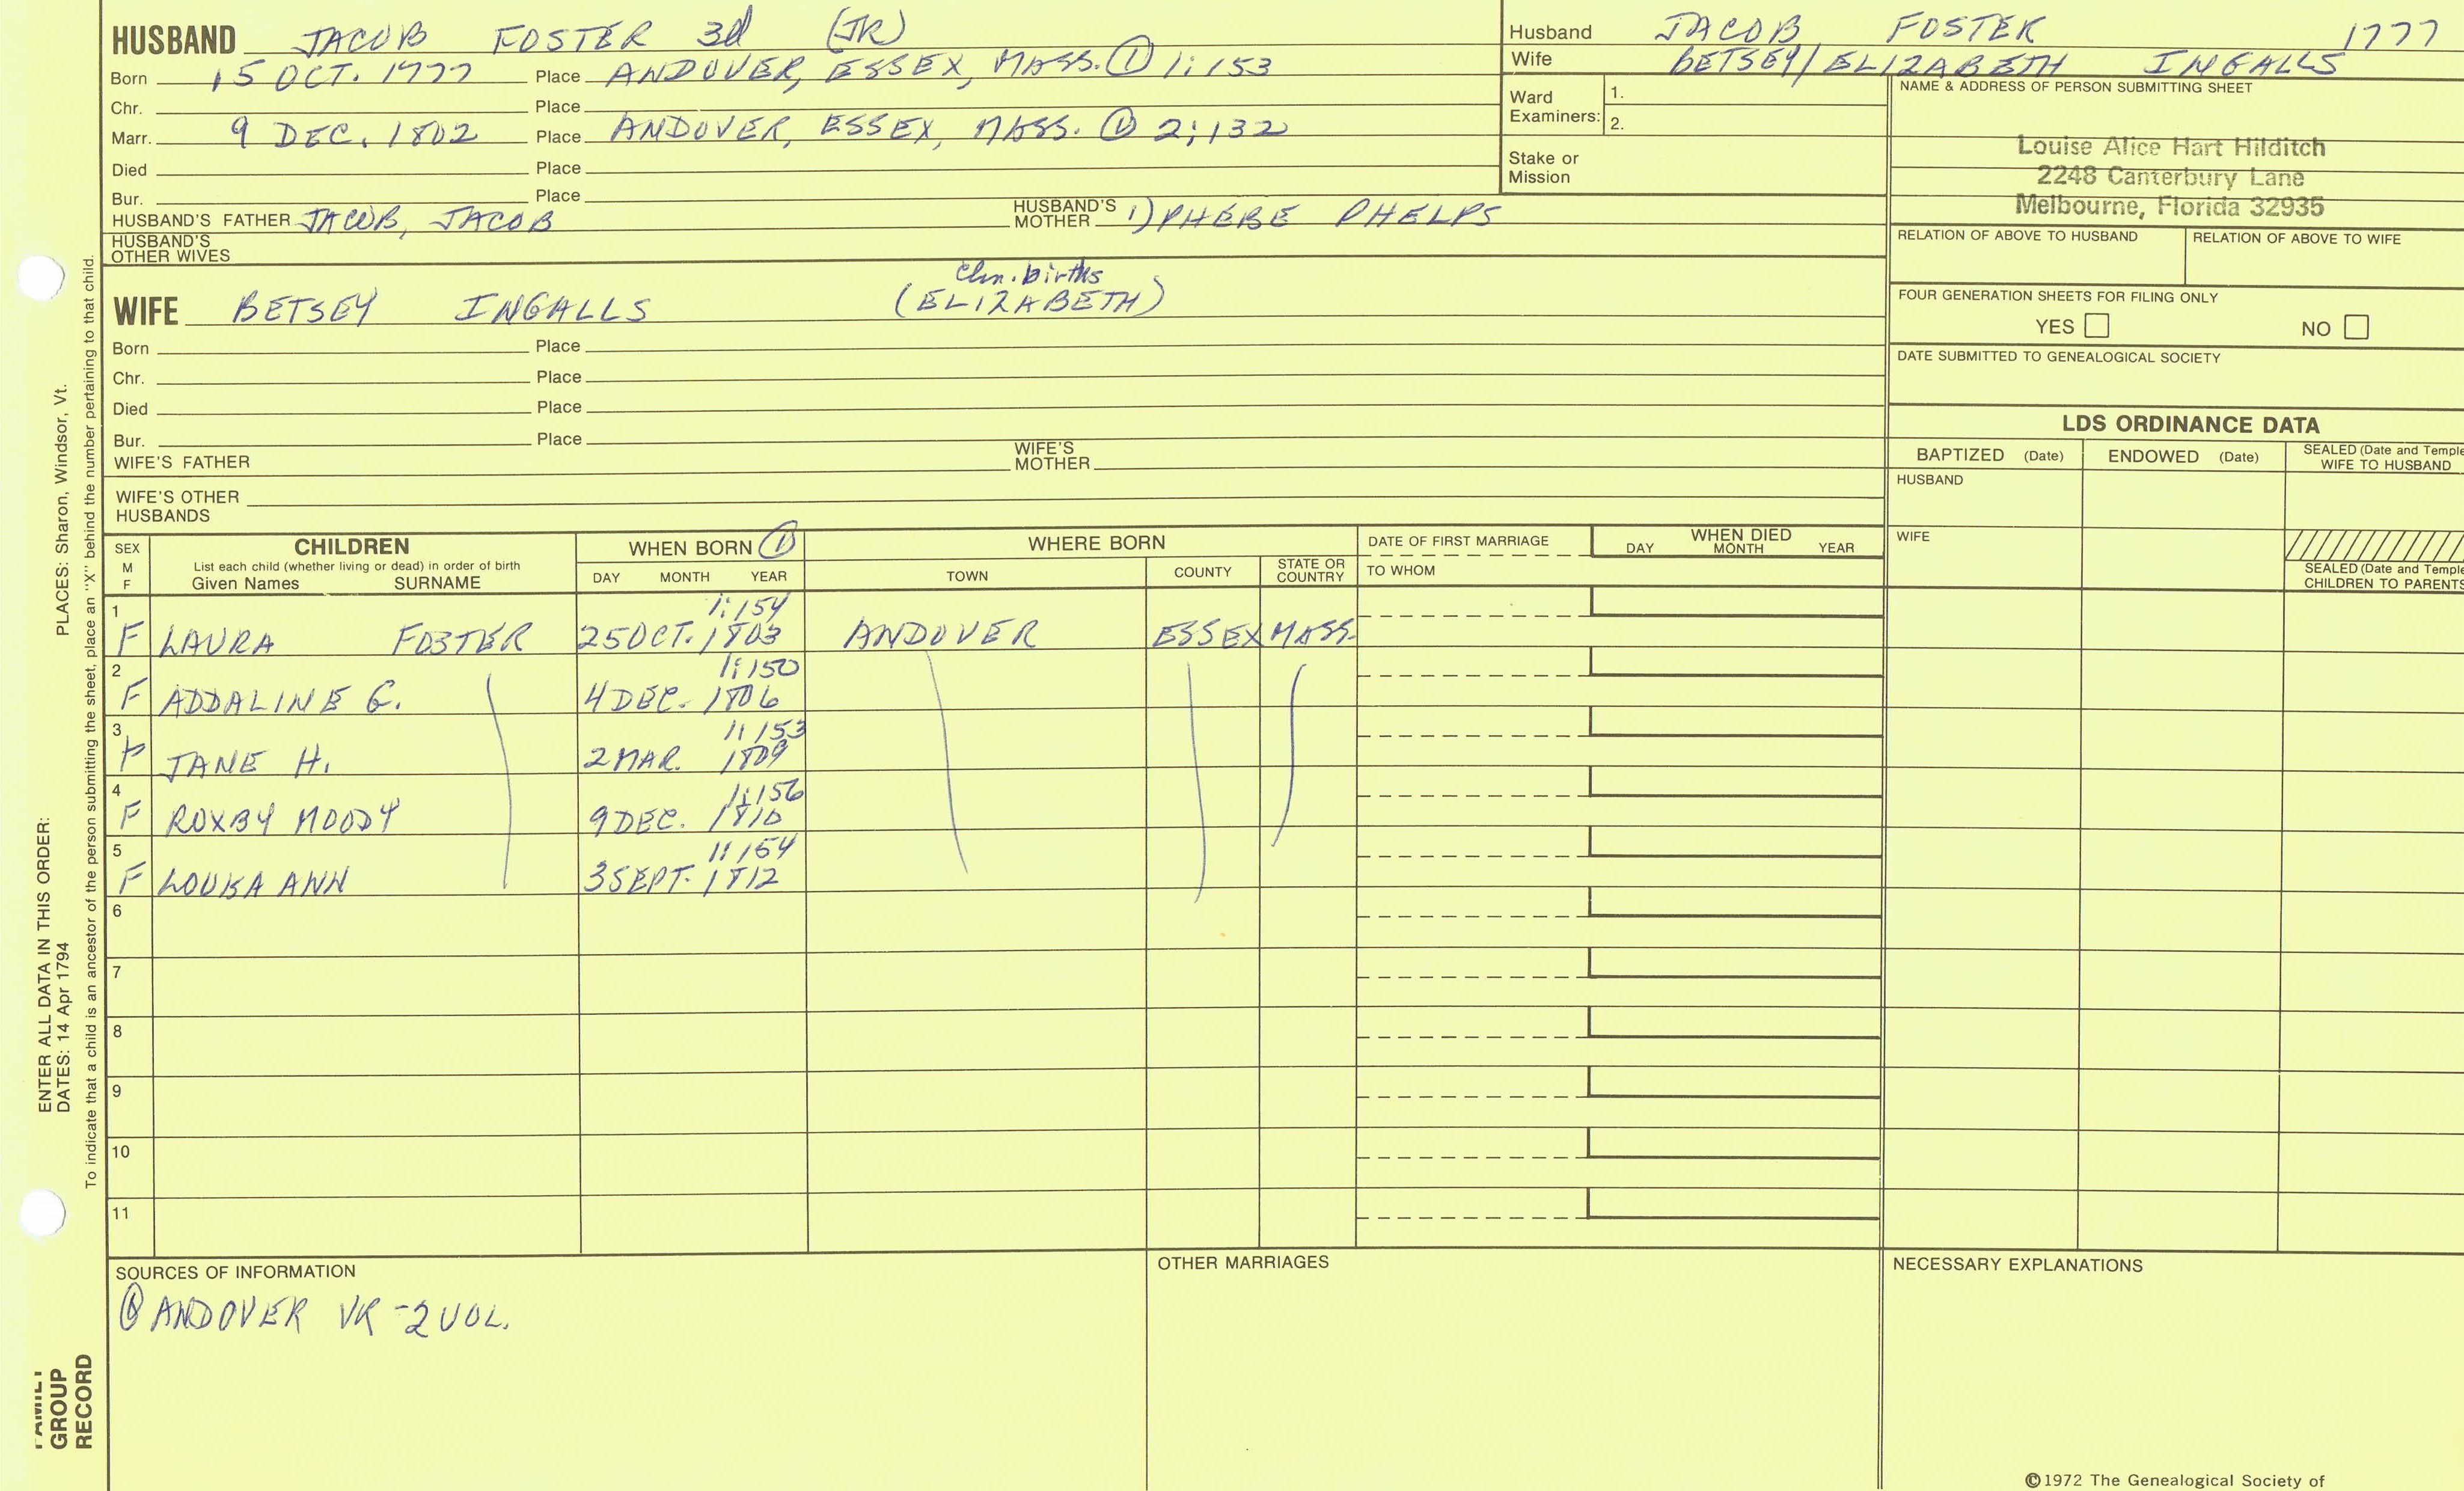 HUSBAND JACOB FOSTER 3d (JR)
Born 15 OCT. 1777 Place ANDOVER, ESSEX, MASS. ① 1:153
Chr. Place
Marr. 9 DEC. 1802 Place ANDOVER, ESSEX, MASS. ① 2:132
Died Place
Bur. Place
HUSBAND'S FATHER JACOB, JACOB HUSBAND'S MOTHER 1) PHEBE PHELPS
HUSBAND'S OTHER WIVES
chn. births
WIFE BETSEY INGALLS (ELIZABETH)
Born Place
Chr. Place
Died Place
Bur. Place
WIFE'S FATHER WIFE'S MOTHER
WIFE'S OTHER HUSBANDS
Husband JACOB FOSTER 1777
Wife BETSEY/ELIZABETH INGALLS
Ward Examiners: 1.
2.
Stake or Mission
NAME & ADDRESS OF PERSON SUBMITTING SHEET
Louise Alice Hart Hilditch
2248 Canterbury Lane
Melbourne, Florida 32935
RELATION OF ABOVE TO HUSBAND RELATION OF ABOVE TO WIFE
FOUR GENERATION SHEETS FOR FILING ONLY
YES NO
DATE SUBMITTED TO GENEALOGICAL SOCIETY
LDS ORDINANCE DATA
BAPTIZED (Date) ENDOWED (Date) SEALED (Date and Temple
WIFE TO HUSBAND
HUSBAND
WIFE
SEALED (Date and Temple
CHILDREN TO PARENTS
SEX M F CHILDREN WHEN BORN ① WHERE BORN DATE OF FIRST MARRIAGE WHEN DIED
List each child (whether living or dead) in order of birth
Given Names SURNAME DAY MONTH YEAR TOWN COUNTY STATE OR COUNTRY TO WHOM DAY MONTH YEAR
1 1:154
F LAURA FOSTER 25 OCT. 1803 ANDOVER ESSEX MASS.
2 1:150
F ADDALINE G. 4 DEC. 1806
3 1:153
F JANE H. 2 MAR. 1809
4 1:156
F ROXBY MOODY 9 DEC. 1810
5 1:154
F LOUISA ANN 3 SEPT. 1812
6
7
8
9
10
11
SOURCES OF INFORMATION
① ANDOVER VR -2 VOL.
OTHER MARRIAGES
NECESSARY EXPLANATIONS
©1972 The Genealogical Society of
ENTER ALL DATA IN THIS ORDER:
DATES: 14 Apr 1794 PLACES: Sharon, Windsor, Vt.
To indicate that a child is an ancestor of the person submitting the sheet, place an "X" behind the number pertaining to that child.
FAMILY
GROUP
RECORD